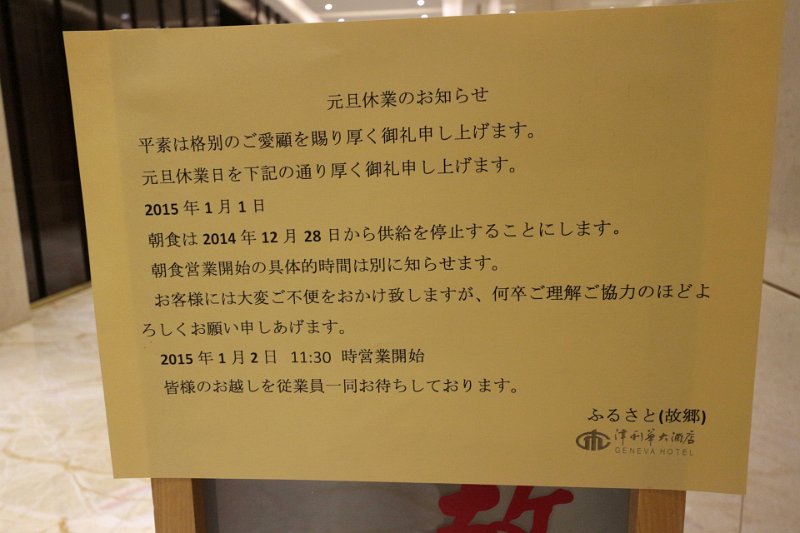 元旦休業のお知らせ
平素は格別のご愛顧を賜り厚く御礼申し上げます。
元旦休業日を下記の通り厚く御礼申し上げます。
2015 年 1 月 1 日
朝食は 2014 年 12 月 28 日から供給を停止することにします。
朝食営業開始の具体的時間は別に知らせます。
お客様には大変ご不便をおかけ致しますが、何卒ご理解ご協力のほどよ
ろしくお願い申しあげます。
2015 年 1 月 2 日 11:30 時営業開始
皆様のお越しを従業員一同お待ちしております。
ふるさと(故郷)
津利華大酒店
GENEVA HOTEL
故